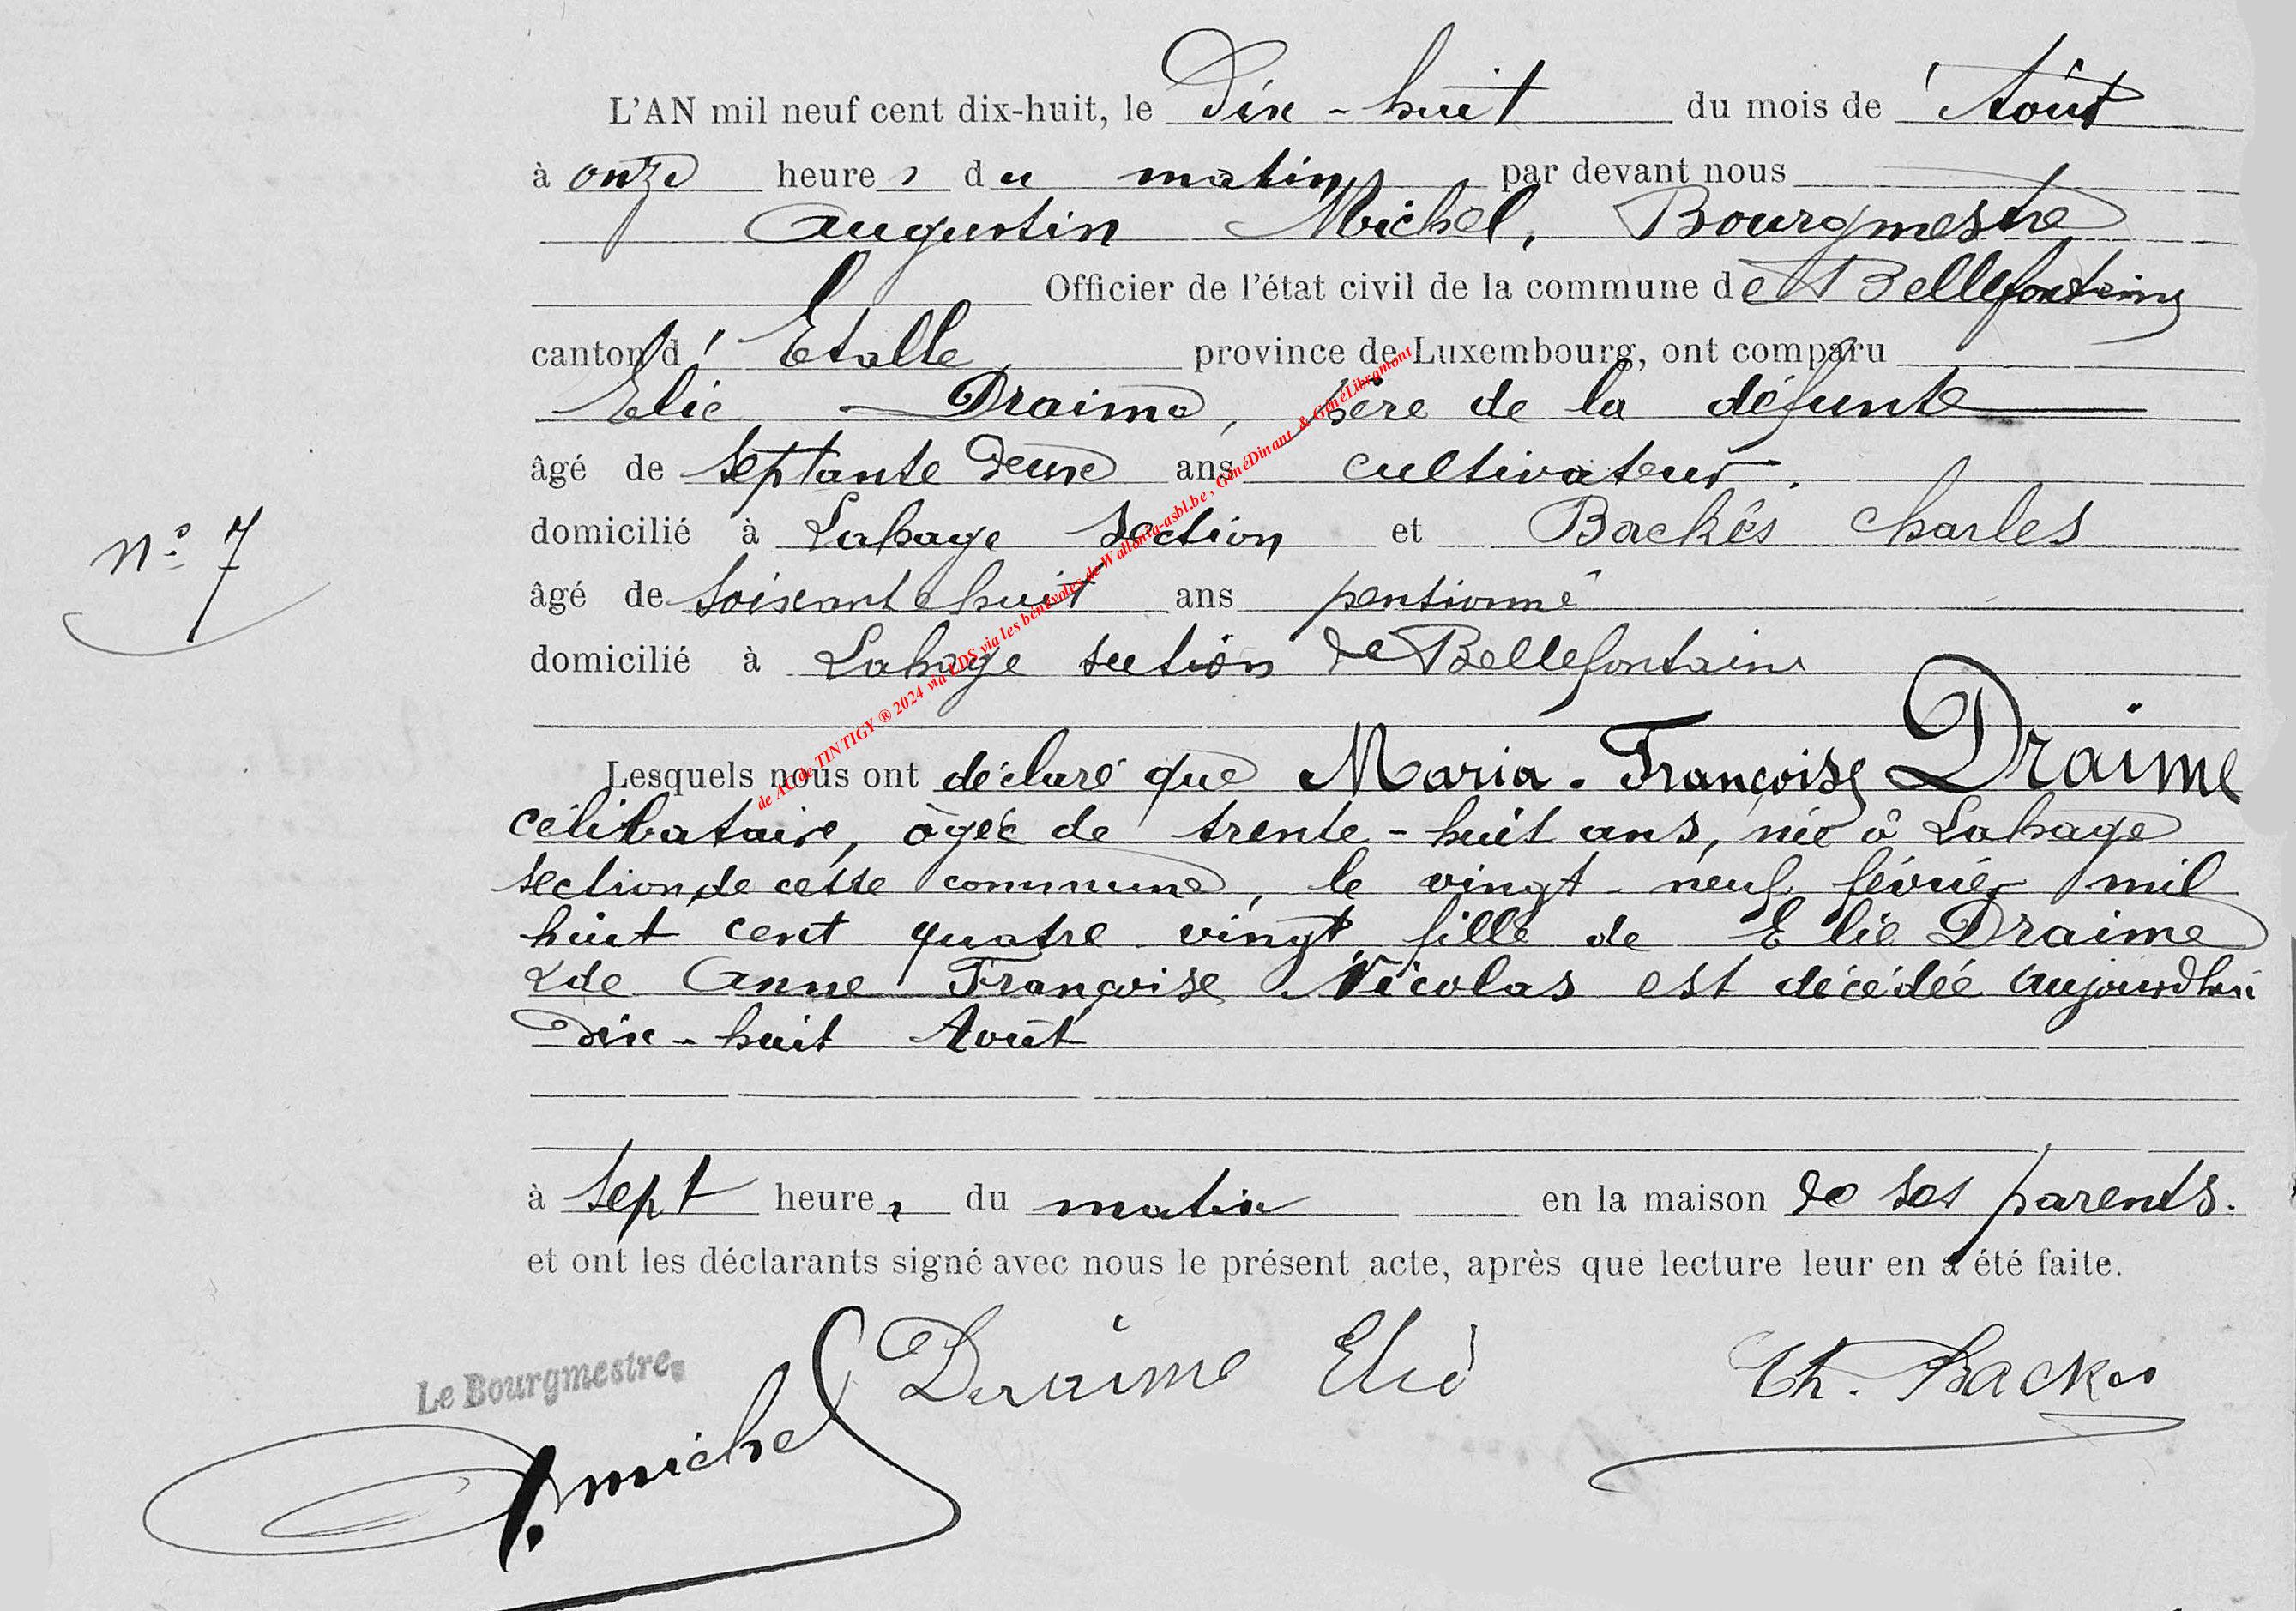 L'AN mil neuf cent dix-huit, le Dix-huit du mois de Août
à onze heures du matin par devant nous
Augustin Michel, Bourgmestre
Officier de l'état civil de la commune de Bellefontaine
canton d'Etalle province de Luxembourg, ont comparu
Elie Draime, père de la défunte
âgé de septante deux ans cultivateur.
domicilié à Lahage section et Backès Charles
nº 7
âgé de soixante huit ans pensionné
domicilié à Lahage section de Bellefontaine
Lesquels nous ont déclaré que Maria-Françoise Draime
célibataire, âgée de trente-huit ans, née à Lahage
section de cette commune, le vingt-neuf février mil
huit cent quatre vingt, fille de Elie Draime
& de Anne Françoise Nicolas est décédée aujourdhui
dix-huit Août
à sept heures du matin en la maison de ses parents.
et ont les déclarants signé avec nous le présent acte, après que lecture leur en a été faite.
Le Bourgmestre,
A. Michel Draime Elie Ch. Backes
de AC de TINTIGY ® 2024 via LDS via les bénévoles de Wallonia-asbl.be, GénéDinant & GénéLibramont